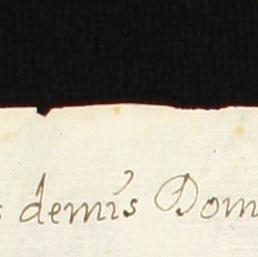 s demis Dom